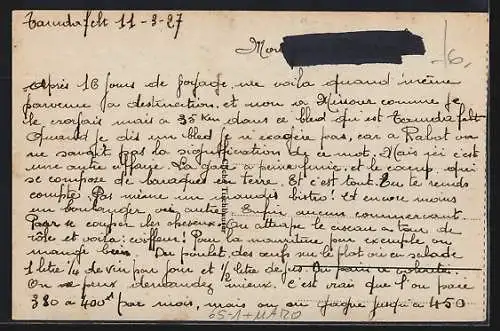 Taoundafelt 11-3-27
Mon
6.
Après 16 jours de voyage, me voila quand même
parvenu a destination, et non a Missour comme je
le croyais mais a 35 Km dans ce bled qui est Taoundafelt
Quand je dis un bled je n'exagère pas, car a Rabat on
ne savait pas la signification de ce mot. Mais ici c'est
une autre affaire. La gare a peine finie, et le camp, qui
se compose de baraques en terre. Et c'est tout. Tu te rends
compte. Pas même un bistro! Et encore moins
un boulanger ou autre. Enfin aucun commerçant.
Pour se couper les cheveux. On attrape le ciseau a tour de
rôle et voila: coiffeur! Pour la nourriture par exemple on
mange bien. Du poulet, des œufs sur le plat ou en salade
1 litre 1/4 de vin par jour et 1/4 litre de jus. Du pain a volonté.
On ne peux demandez mieux. C'est vrai que l'on paie
380 a 400f par mois, mais on en gagne jusqu'a 450
65-1 + MARO